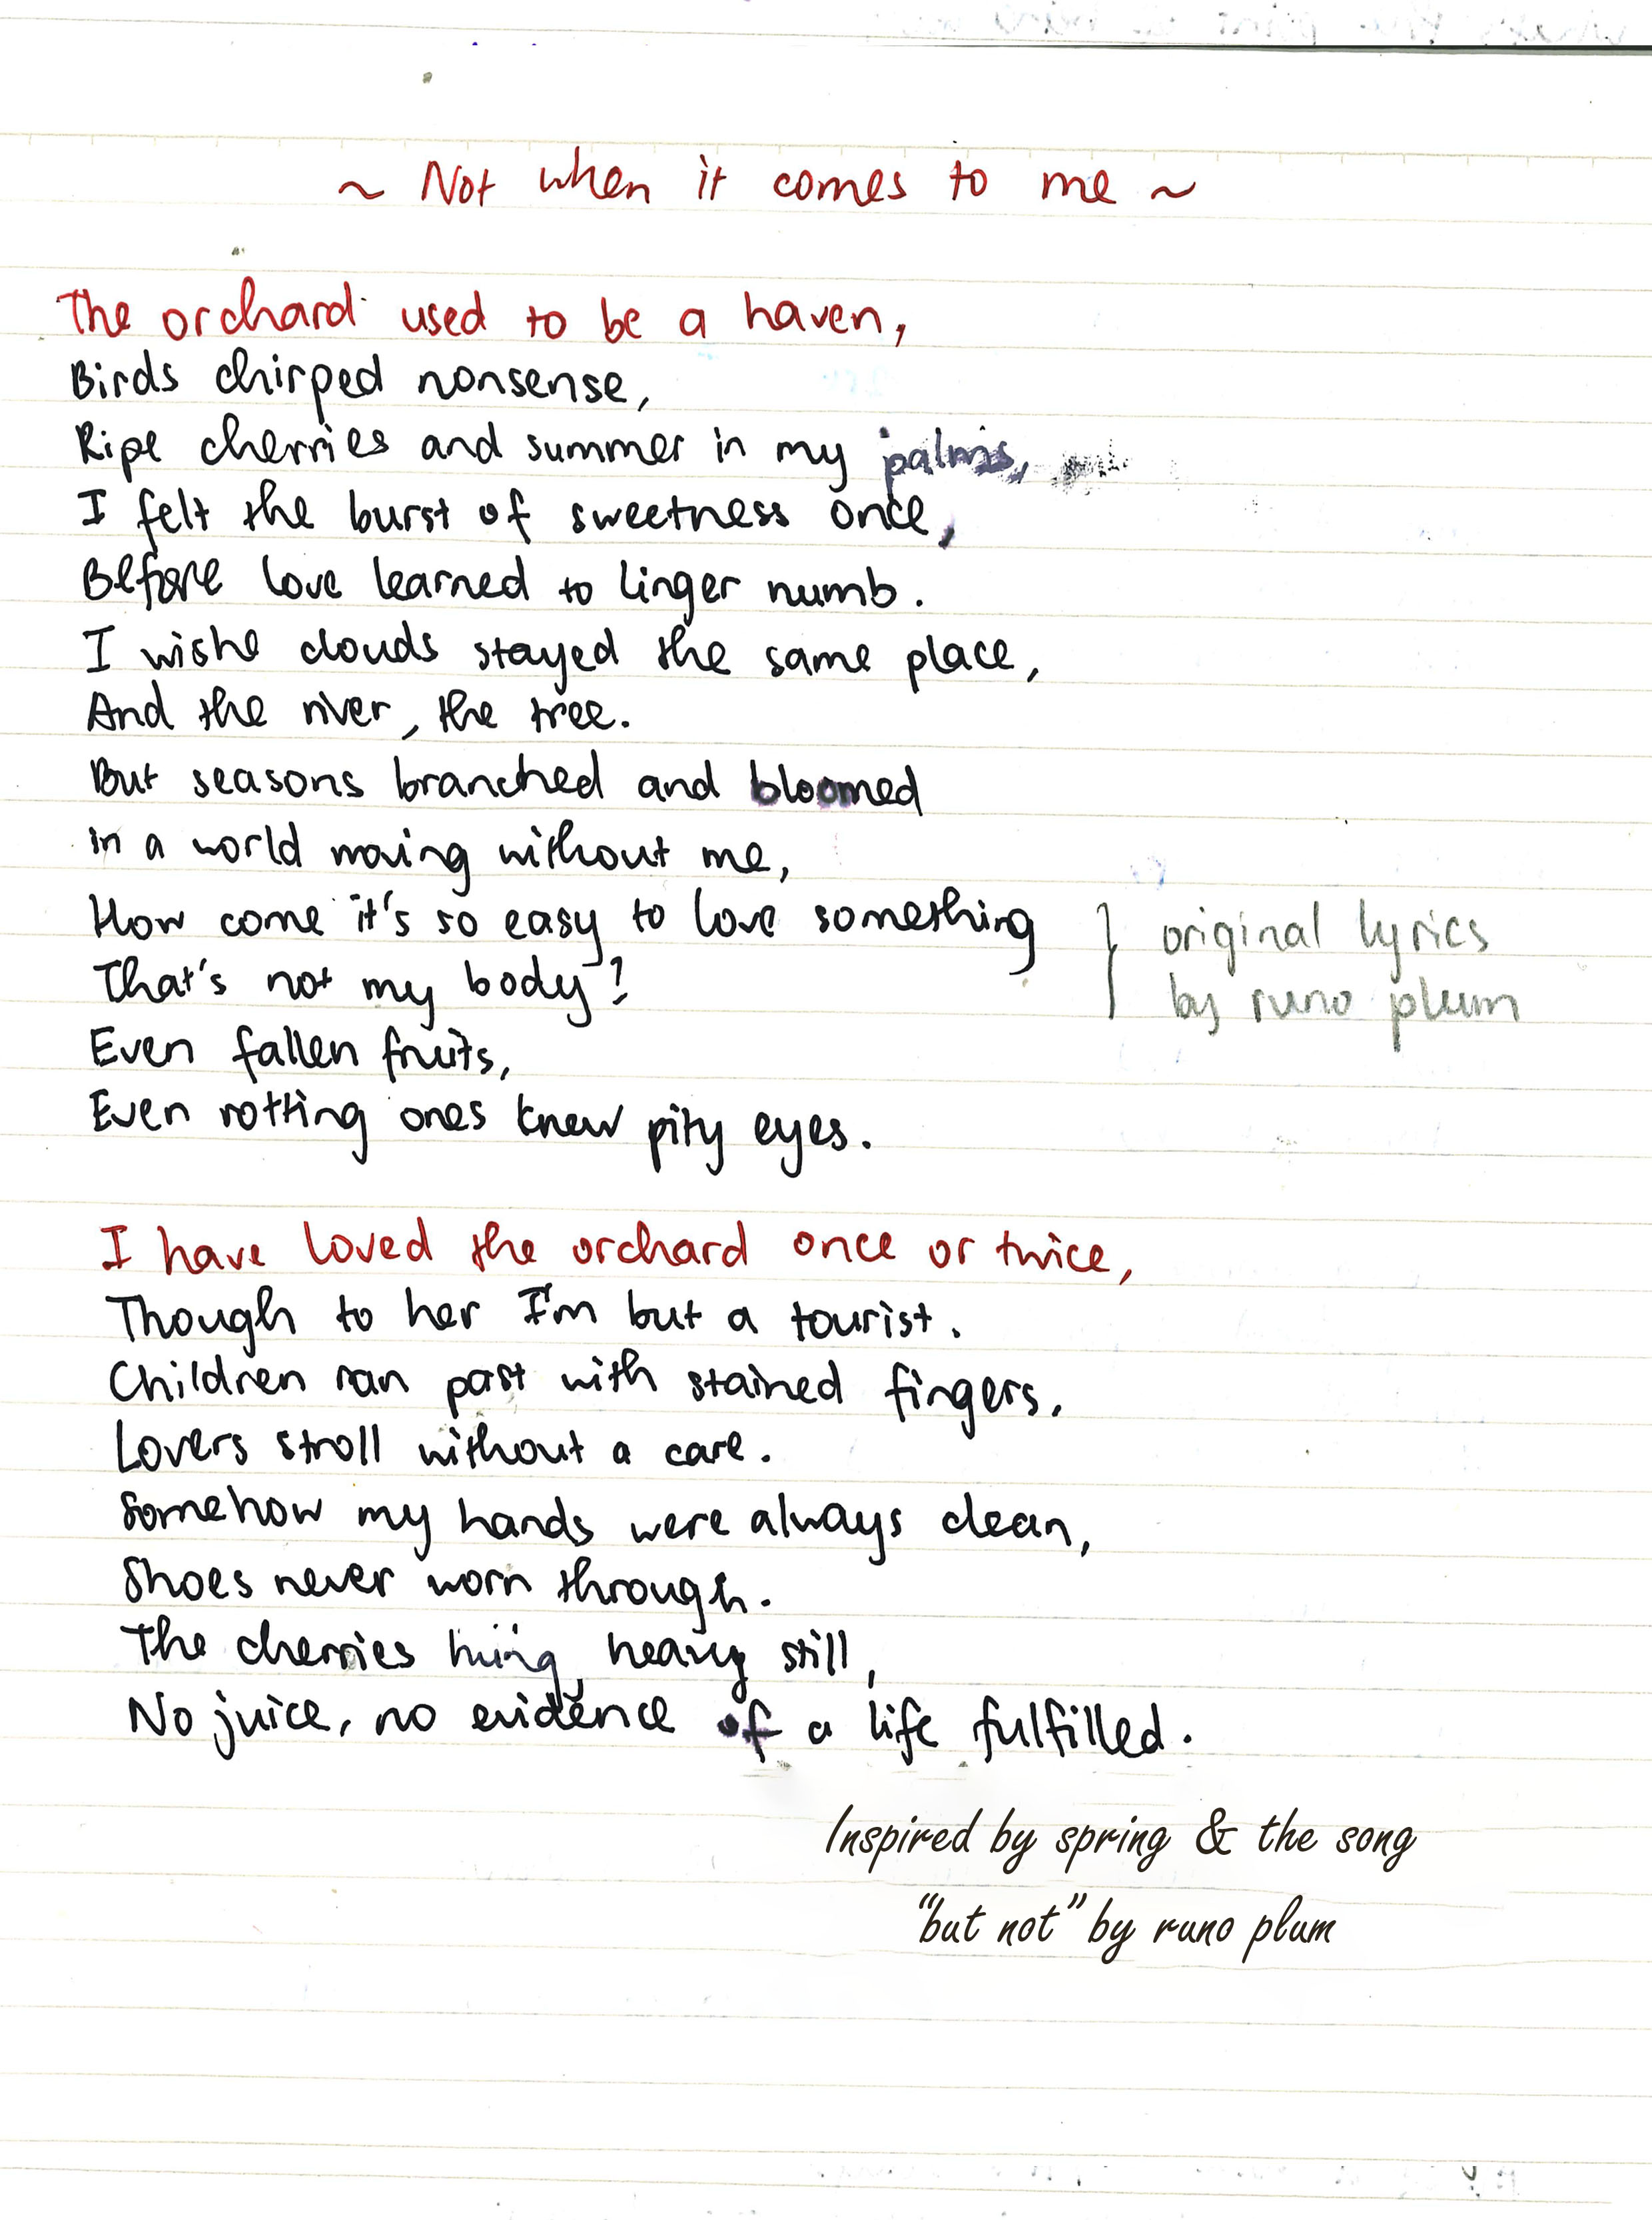 ~ Not when it comes to me ~
The orchard used to be a haven,
Birds chirped nonsense,
Ripe cherries and summer in my palms,
I felt the burst of sweetness once,
Before love learned to linger numb.
I wishe clouds stayed the same place,
And the river, the tree.
But seasons branched and bloomed
in a world moving without me,
How come it's so easy to love something
That's not my body?
} original lyrics
by runo plum
Even fallen fruits,
Even rotting ones knew pity eyes.
I have loved the orchard once or twice,
Though to her I'm but a tourist.
Children ran past with stained fingers.
Lovers stroll without a care.
Somehow my hands were always clean,
Shoes never worn through.
The cherries hung heavy still,
No juice, no evidence of a life fulfilled.
Inspired by spring & the song
“but not” by runo plum